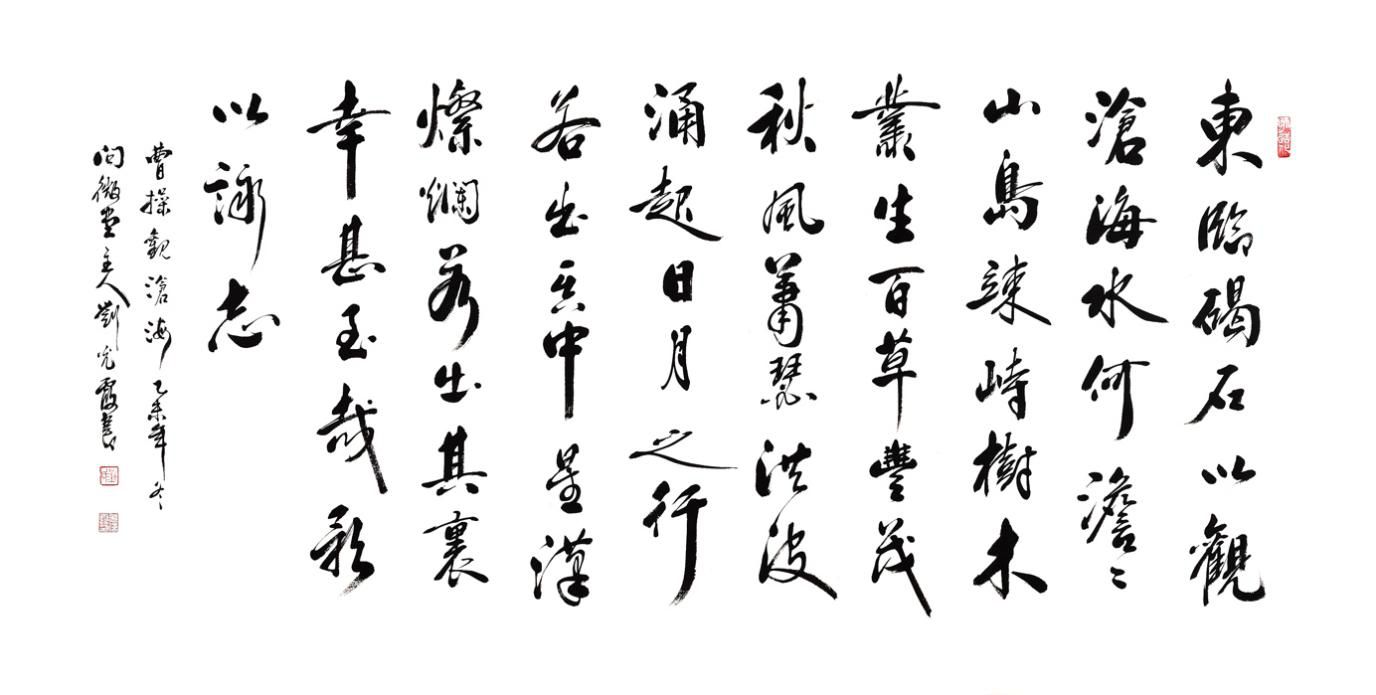 東臨碣石以觀
滄海水何澹〻
山島竦峙樹木
叢生百草豐茂
秋風蕭瑟洪波
涌起日月之行
若出其中星漢
燦爛若出其裏
幸甚至哉歌
以詠志
曹操觀滄海 乙未年冬
問微堂主人劉光霞書